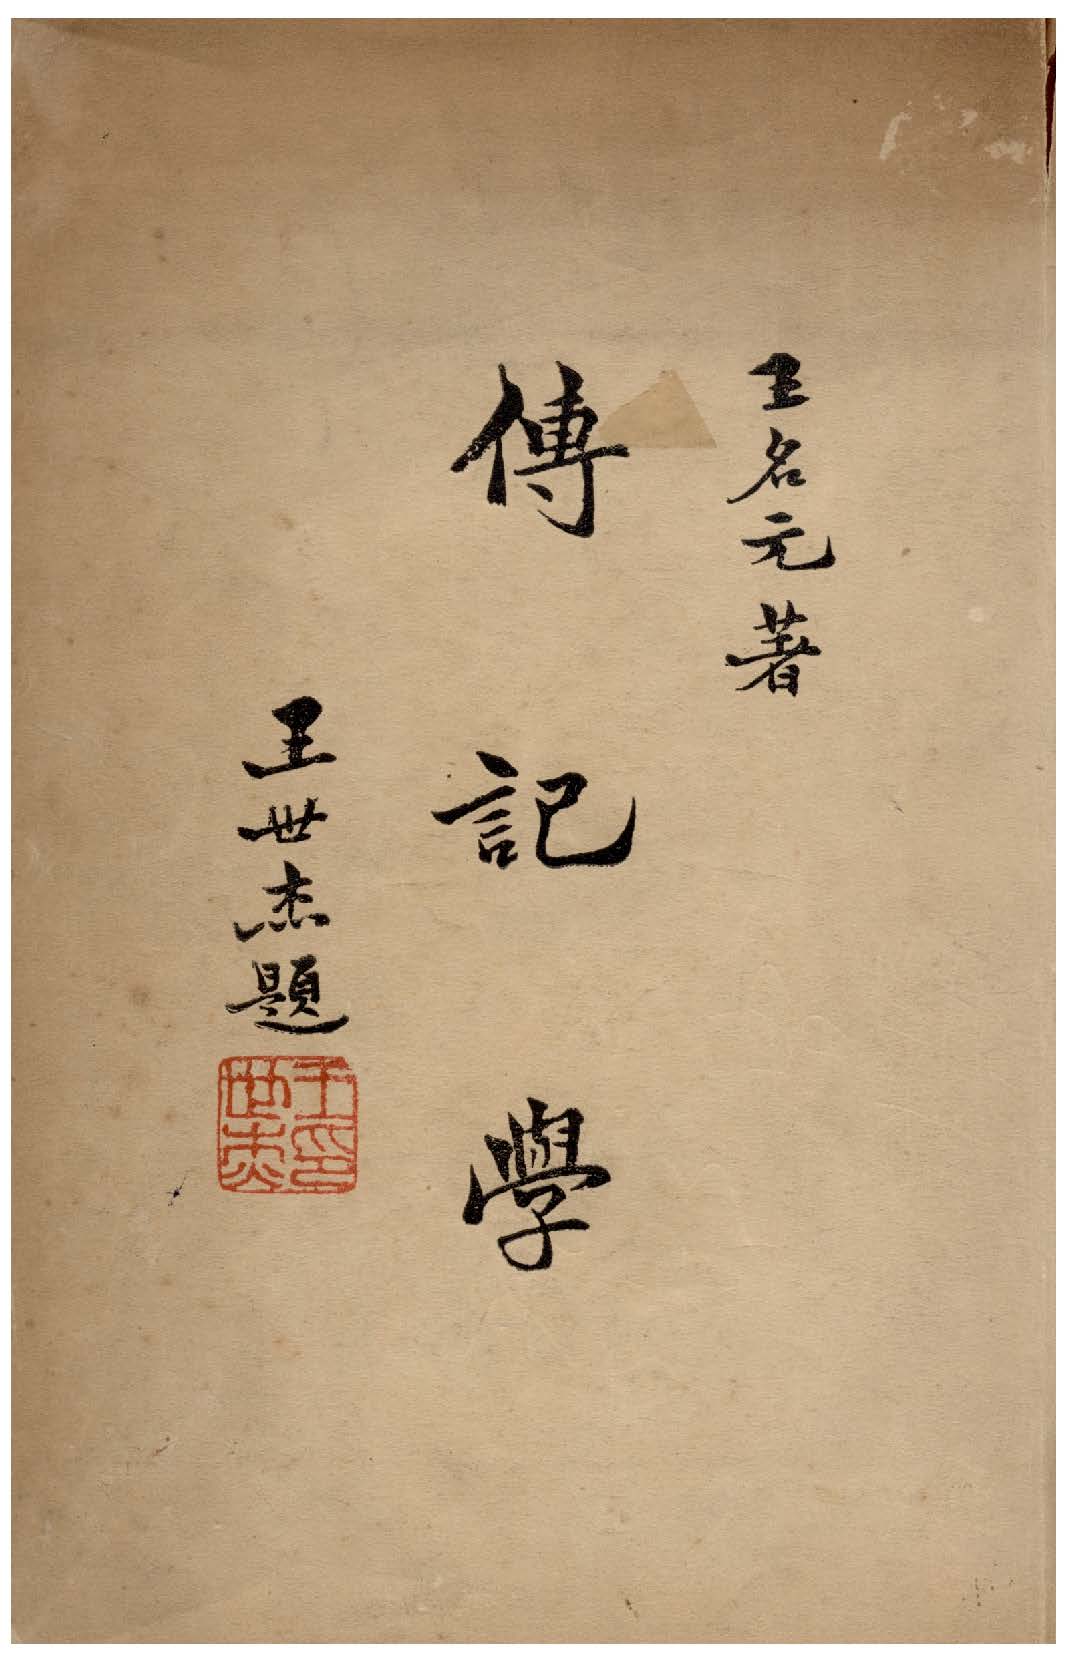 王名元著
傳記學
王世杰題
王印
世杰